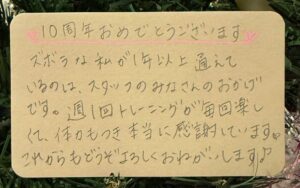 10周年おめでとうございます
ズボラな私が1年以上通えて
いるのは、スタッフのみなさんのおかげ
です。週1回トレーニングが毎回楽し
くて、体力もつき本当に感謝しています。
これからもどうぞよろしくおねがいします♪